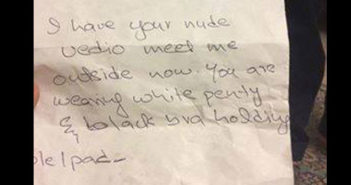 I have your nude
vedio meet me
outside now. You are
wearing white penty
& balack bra holding
ble Ipad-